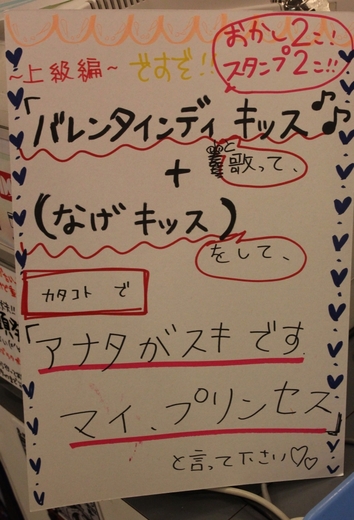 おかし2こ!
スタンプ2こ!!
~上級編~ ですぞ!!
「バレンタインディ キッス♪♪
と歌って、
+
(なげキッス)
をして、
カタコト で
「アナタがスキです
マイ、プリンセス」
と言って下さい♡♡